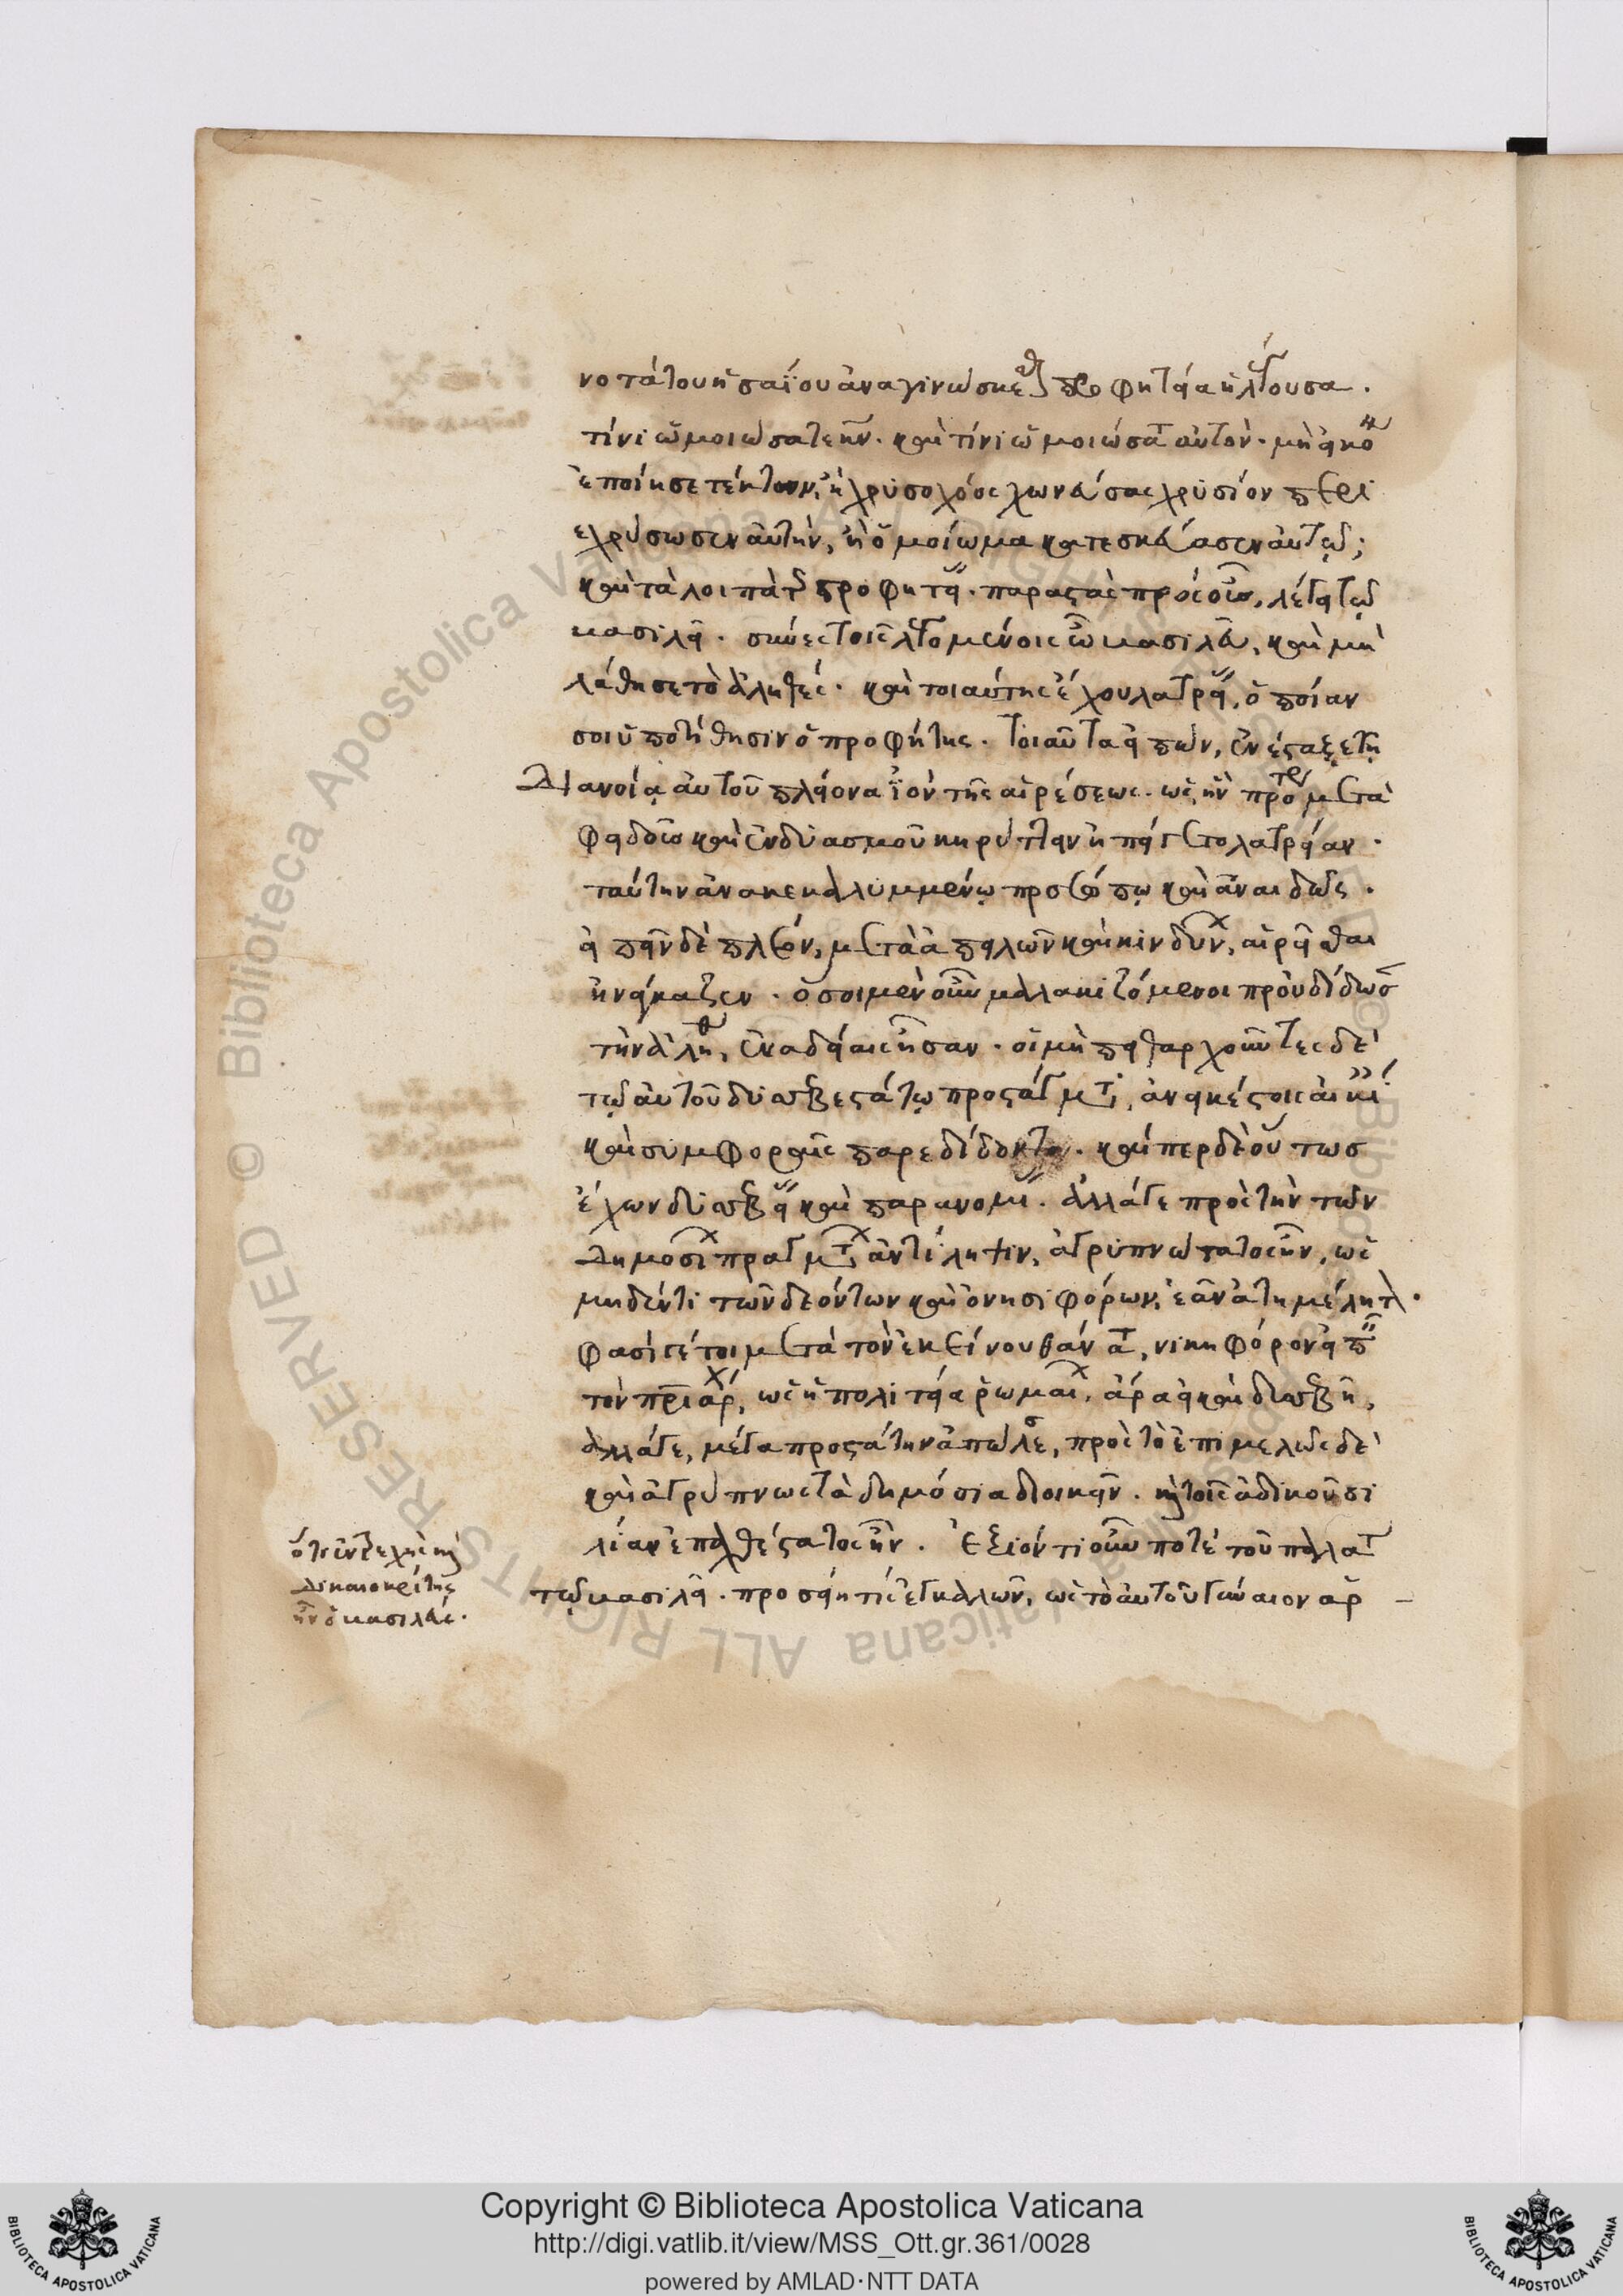 νοτάτου ἡσαΐου ἀναγινώσκεσθαι προφητεία ἡ λέγουσα.
τίνι ὡμοιώσατε κν. καὶ τίνι ὡμοιώσατε αὐτόν. μὴ εἰκόνα
ἐποίησε τέκτων, ἢ χρυσοχόος χωνεύσας χρυσίον περι
εχρύσωσεν αὐτήν, ἢ ὁμοίωμα κατεσκεύασεν αὐτῷ;
καὶ τὰ λοιπὰ τῆς προφητείας. παραστὰς πρὸς οὖς, λέγει τῷ
βασιλεῖ. σύνες τοῖς λεγομένοις ὦ βασιλεῦ, καὶ μὴ
λάθῃ σε τὸ ἀληθές. καὶ τοιαύτης ἔχου λατρείας, ὁποίαν
σοι ὑποτίθησιν ὁ προφήτης. τοιαῦτα εἰπών, ἐνέσταξε τῇ
διανοίᾳ αὐτοῦ πλείονα ἰὸν τῆς αἱρέσεως. ὡς ἣν πρότερον μετὰ
φειδοῦς καὶ ἐνδυασμοῦ κηρύττειν ἠπείγετο λατρείαν.
ταύτην ἀνακεκαλυμμένῳ προσώπῳ καὶ ἀναιδῶς.
εἰπεῖν δὲ πλέον, μετὰ ἀπειλῶν καὶ κινδύνων, αἱρεῖσθαι
ἠνάγκαζεν. ὅσοι μὲν οὖν μαλακιζόμενοι προὐδίδωσαν
τὴν ἀλήθειαν, ἐν ἀδείαις ἦσαν. οἱ μὴ πειθαρχοῦντες δὲ
τῷ αὐτοῦ δυσσεβεστάτῳ προστάγματι, ἀνηκέστοις αἰκίαις
καὶ συμφοραῖς παρεδίδοντο. καίπερ δὲ οὕτως
ἔχων δυσσεβείας καὶ παρανομίας. ἀλλά γε πρὸς τὴν τῶν
δημοσίων πραγμάτων ἀντίληψιν, ἀγρυπνώτατος ἦν, ὡς
μηδέν τι τῶν δεόντων καὶ ὀνησιφόρων, ἐᾶν ἀτημέλητον.
φασί γέ τοι μετὰ τὸν ἐκείνου θάνατον, νικηφόρον εἰπεῖν
τὸν πριάρχην, ὡς ἡ πολιτεία ῥωμαίων, ἄρα εἰ καὶ δυσσεβῆ,
ἀλλά γε, μέγα προστάτην ἀπώλεσε, πρὸς τὸ ἐπιμελῶς δὲ
καὶ ἀγρύπνως τὰ δημόσια διοικεῖν. καὶ τοῖς ἀδικοῦσι
λίαν ἐπαχθέστατος ἦν. ἐξιόντι οὖν ποτὲ τοῦ παλατίου
τῷ βασιλεῖ. προσῄει τίς ἐγκαλῶν, ὡς τὸ αὐτοῦ γύναιον ἁρ
ὅτι ἐντεχνὴς καὶ
δικαιοκρίτης
ἦν ὁ βασιλεύς.
Copyright © Biblioteca Apostolica Vaticana
http://digi.vatlib.it/view/MSS_Ott.gr.361/0028
powered by AMLAD·NTT DATA
BIBLIOTECA APOSTOLICA VATICANA
BIBLIOTECA APOSTOLICA VATICANA